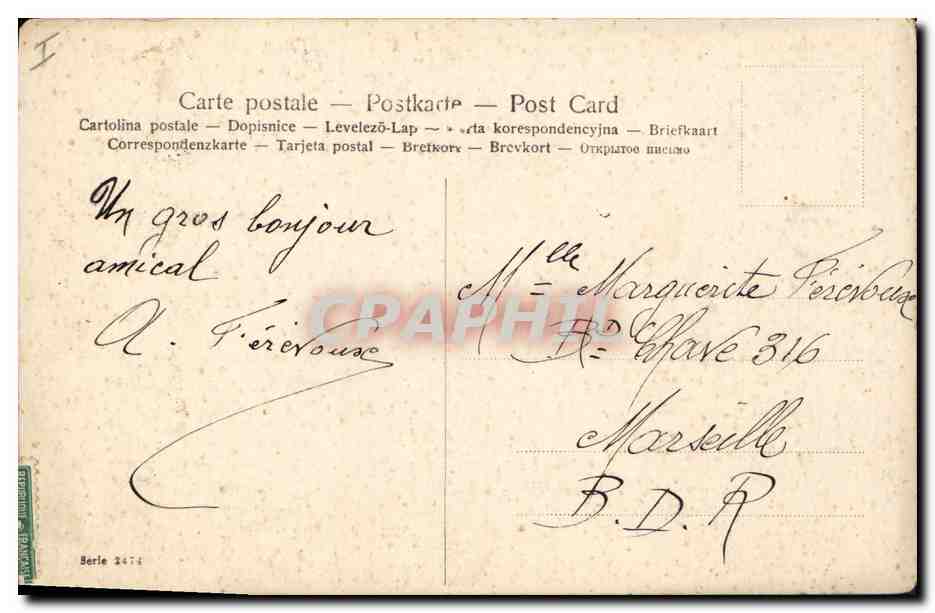 I
Carte postale — Postkarte — Post Card
Cartolina postale — Dopisnice — Levelezö-Lap — korespondencyjna — Briefkaart
Correspondenzkarte — Tarjeta postal — Brefkort — Brevkort — Открытое письмо
Un gros bonjour
amical
A. Férévoux
Mlle Marguerite Férévoux
Bd Chave 316
Marseille
B. D. R
CPAPHIL
REPUBLIQUE FRANÇAISE
Serie 2474